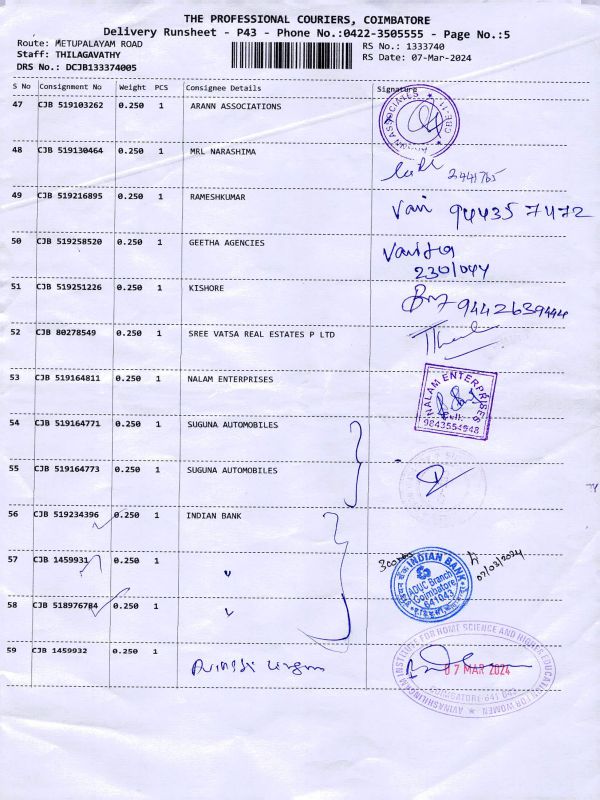 THE PROFESSIONAL COURIERS, COIMBATORE
Delivery Runsheet - P43 - Phone No.:0422-3505555 - Page No.:5
Route: METUPALAYAM ROAD
Staff: THILAGAVATHY
DRS No.: DCJB133374005
RS No.: 1333740
RS Date: 07-Mar-2024
S No Consignment No Weight PCS Consignee Details Signature
47 CJB 519103262 0.250 1 ARANN ASSOCIATIONS
48 CJB 519130464 0.250 1 MRL NARASHIMA
2441765
49 CJB 519216895 0.250 1 RAMESHKUMAR
Vani 94435 7472
50 CJB 519258520 0.250 1 GEETHA AGENCIES
230/044
51 CJB 519251226 0.250 1 KISHORE
9442639444
52 CJB 80278549 0.250 1 SREE VATSA REAL ESTATES P LTD
53 CJB 519164811 0.250 1 NALAM ENTERPRISES
NALAM ENTERPRISES
9843554948
54 CJB 519164771 0.250 1 SUGUNA AUTOMOBILES
55 CJB 519164773 0.250 1 SUGUNA AUTOMOBILES
56 CJB 519234396 0.250 1 INDIAN BANK
57 CJB 1459931 0.250 1 "
INDIAN BANK
ADUC Branch
Coimbatore
641043
07/03/2024
58 CJB 518976784 0.250 1 "
59 CJB 1459932 0.250 1
07 MAR 2024
AVINASHILINGAM INSTITUTE FOR HOME SCIENCE AND HIGHER EDUCATION FOR WOMEN